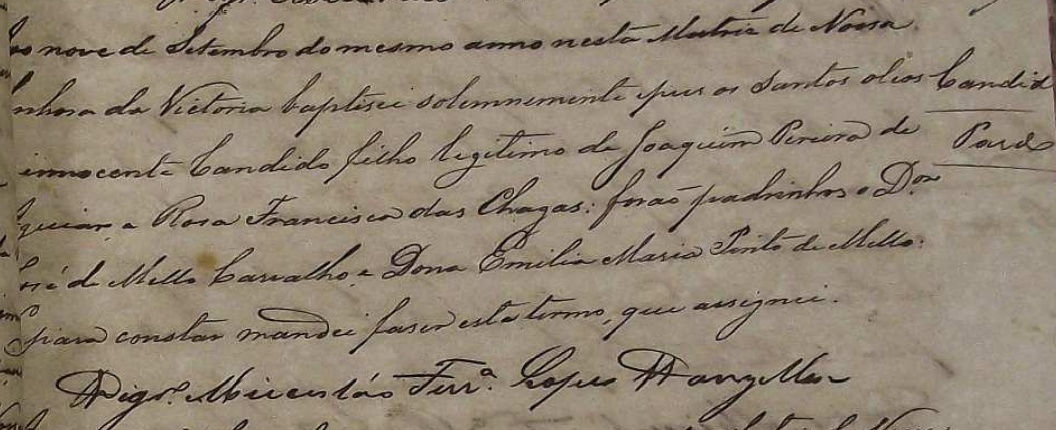 nove de Setembro do mesmo anno nesta Matriz de Nossa
nhora da Victoria baptisei solemnemente e pus os Santos oleos
Candid
innocente Candido filho legitimo de Joaquim Pereira de
Pardo
guiar, e Rosa Francisca das Chagas: forão padrinhos o D.or
sé de Mello Carvalho, e Dona Emilia Maria Pinto de Mello:
para constar mandei faser este termo, que assignei.
Vigr.º Ferr.ª Lopes